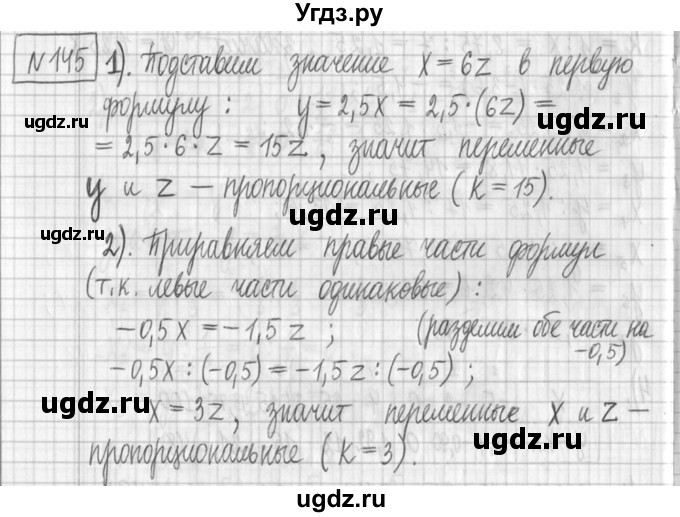 Угдз.ру
N145 1). Подставим значение x=6z в первую
формулу: y=2,5x=2,5·(6z)=
ugdz.ru
ugdz.ru
=2,5·6·z=15z, значит переменные
y и z — пропорциональные (k=15).
ugdz.ru
ugdz.ru
ugdz.ru
2). Приравняем правые части формул
(т.к. левые части одинаковые):
-0,5x=-1,5z; (разделим обе части на
-0,5)
-0,5x:(-0,5)=-1,5z:(-0,5);
ugdz.ru
ugdz.ru
x=3z, значит переменные x и z —
пропорциональные (k=3).
ugdz.ru
ugdz.ru